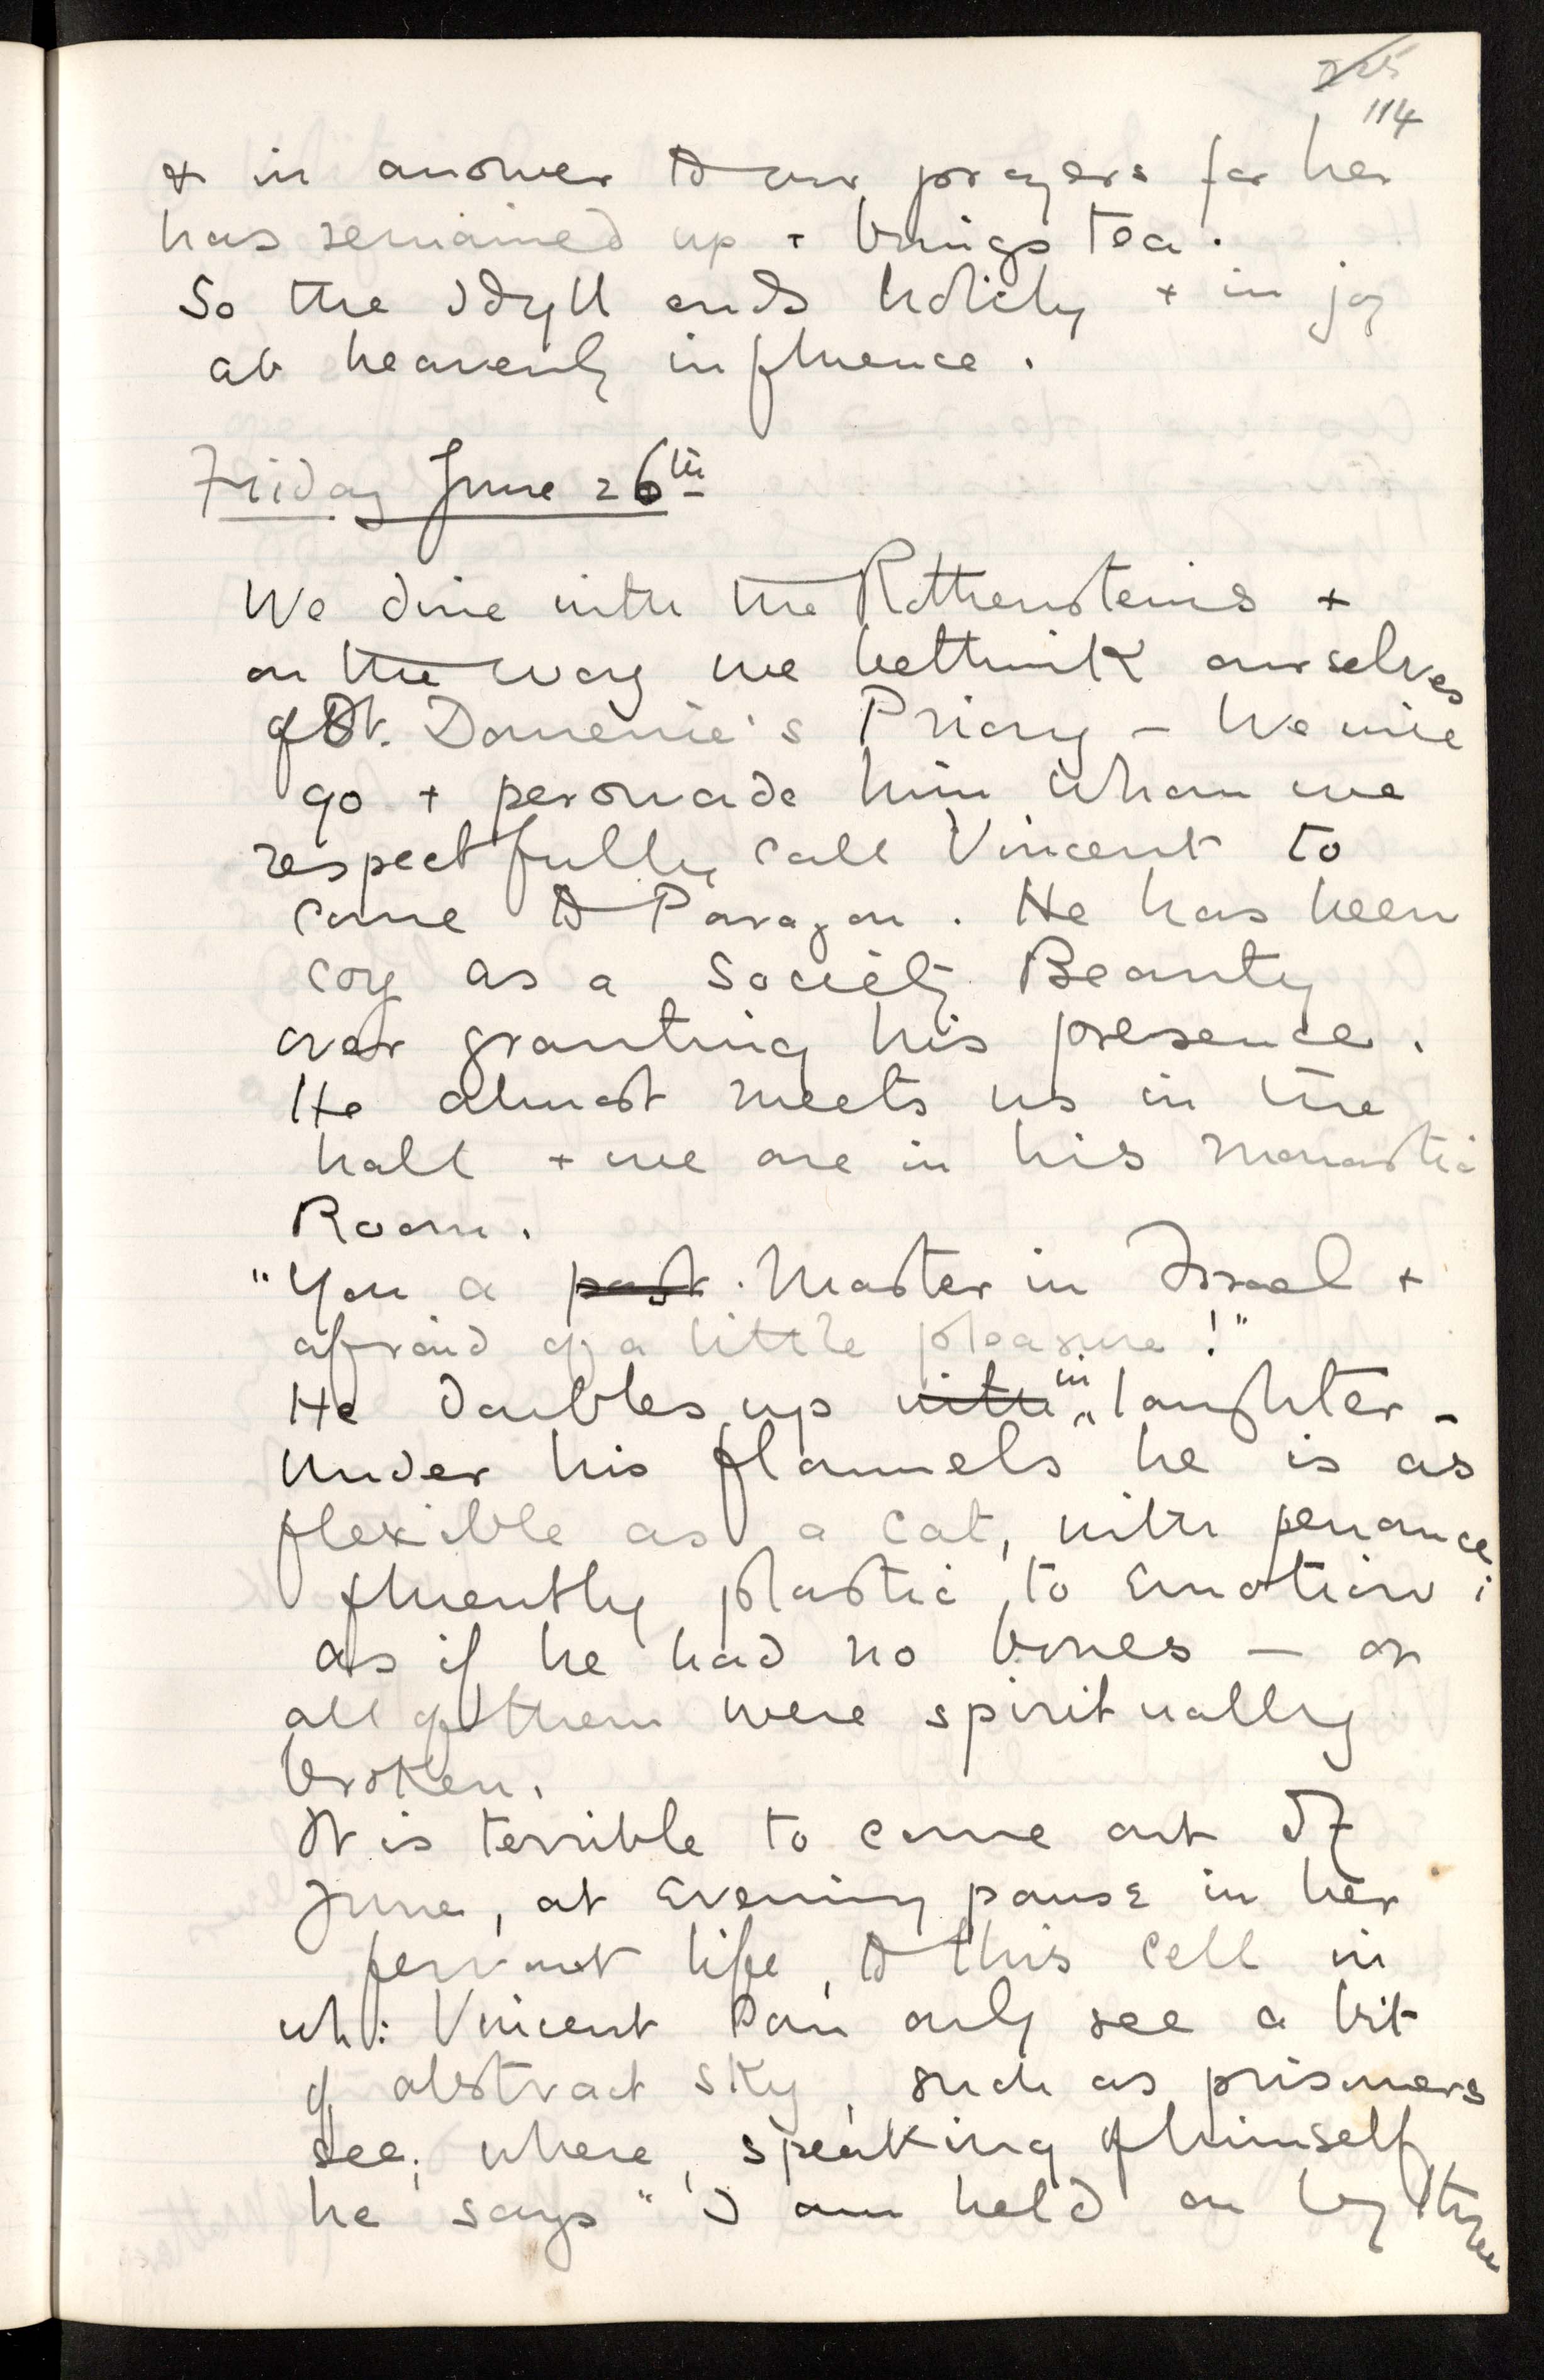 225
114
& in answer to our prayers for her
has remained up + brings tea.
So the Idyll ends holily + in joy
at heavenly influence.
Friday June 26th
We dine with the Rothensteins +
on the way we bethink ourselves
of St. Domenic's Priory – We will
go + persuade him whom we
respectfully call Vincent to
come to Paragon. He has been
coy as a Society Beauty
over granting his presence.
He almost meets us in the
hall + we are in his monastic
Room.
"You a past. Master in Israel +
afraid of a little pleasure!"
He doubles up with in laughter –
Under his flannels he is as
flexible as a cat, with penance
fluently plastic, to Emotion;
as if he had no bones – or
all of them were spiritually
broken.
It is terrible to come out of
June, at Evening pause in her
fervent life, to this cell in
wh: Vincent can only see a bit
of abstract sky, such as prisoners
see; where, speaking of himself,
he says "I am held on by three